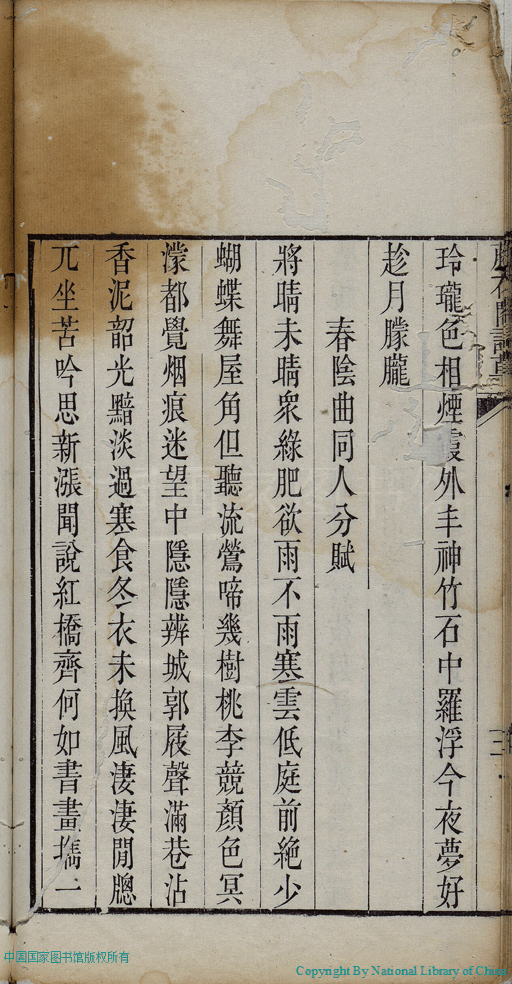 玲瓏色相煙霞外丰神竹石中羅浮今夜夢好
趁月朦朧
春陰曲同人分賦
將晴未晴衆綠肥欲雨不雨寒雲低庭前絶少
蝴蝶舞屋角但聽流鶯啼幾樹桃李競顏色冥
濛都覺烟痕迷望中隱隱辨城郭屐聲滿巷沾
香泥韶光黯淡過寒食冬衣未換風淒淒閒牕
兀坐苦吟思新漲聞說紅橋齊何如書畫攜一
中国国家图书馆版权所有
Copyright By National Library of China